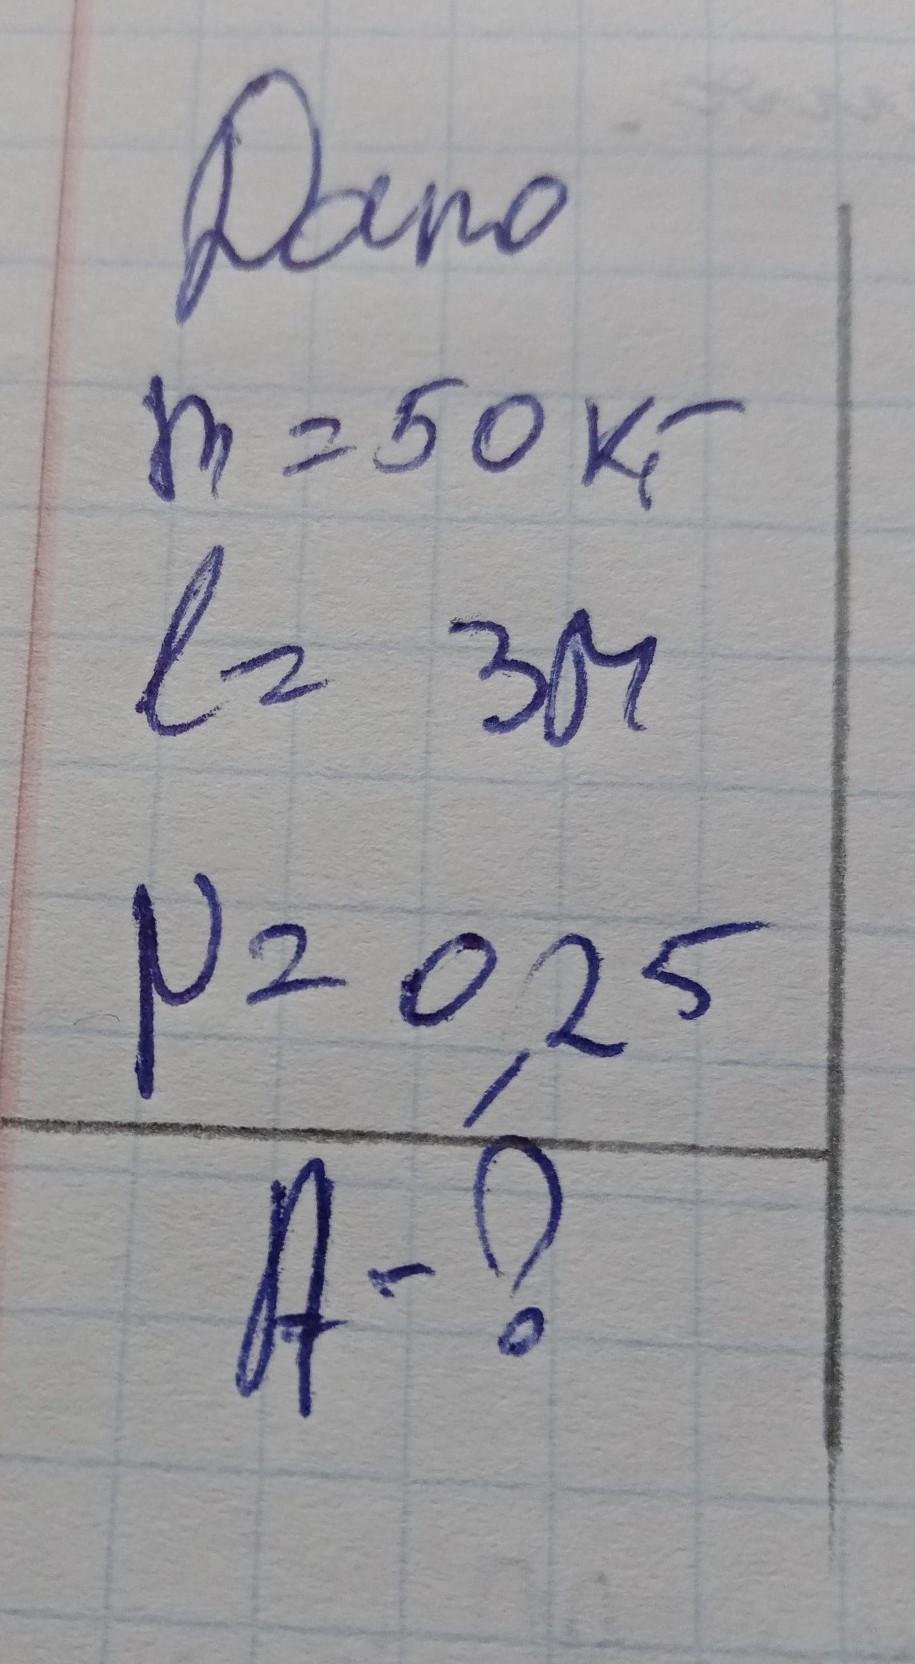 Дано
m = 50 кг
l = 3м
μ = 0,25
A - ?